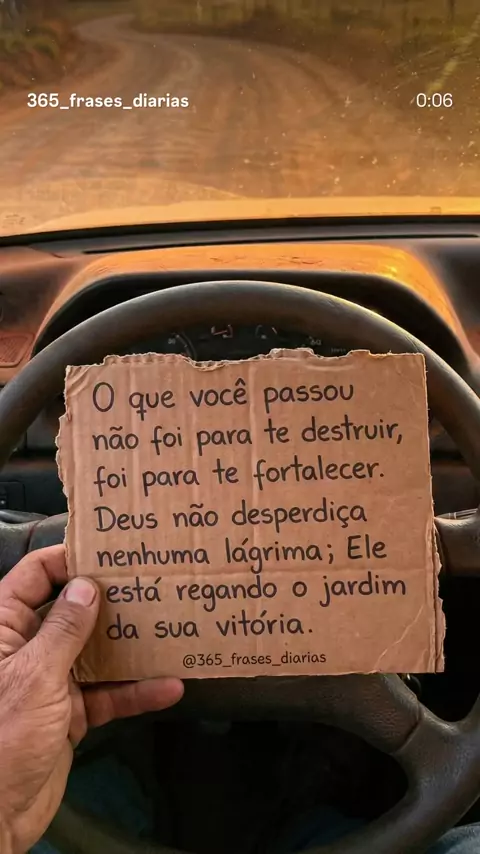 365_frases_diarias
0:06
O que você passou
não foi para te destruir,
foi para te fortalecer.
Deus não desperdiça
nenhuma lágrima; Ele
está regando o jardim
da sua vitória.
@365_frases_diarias